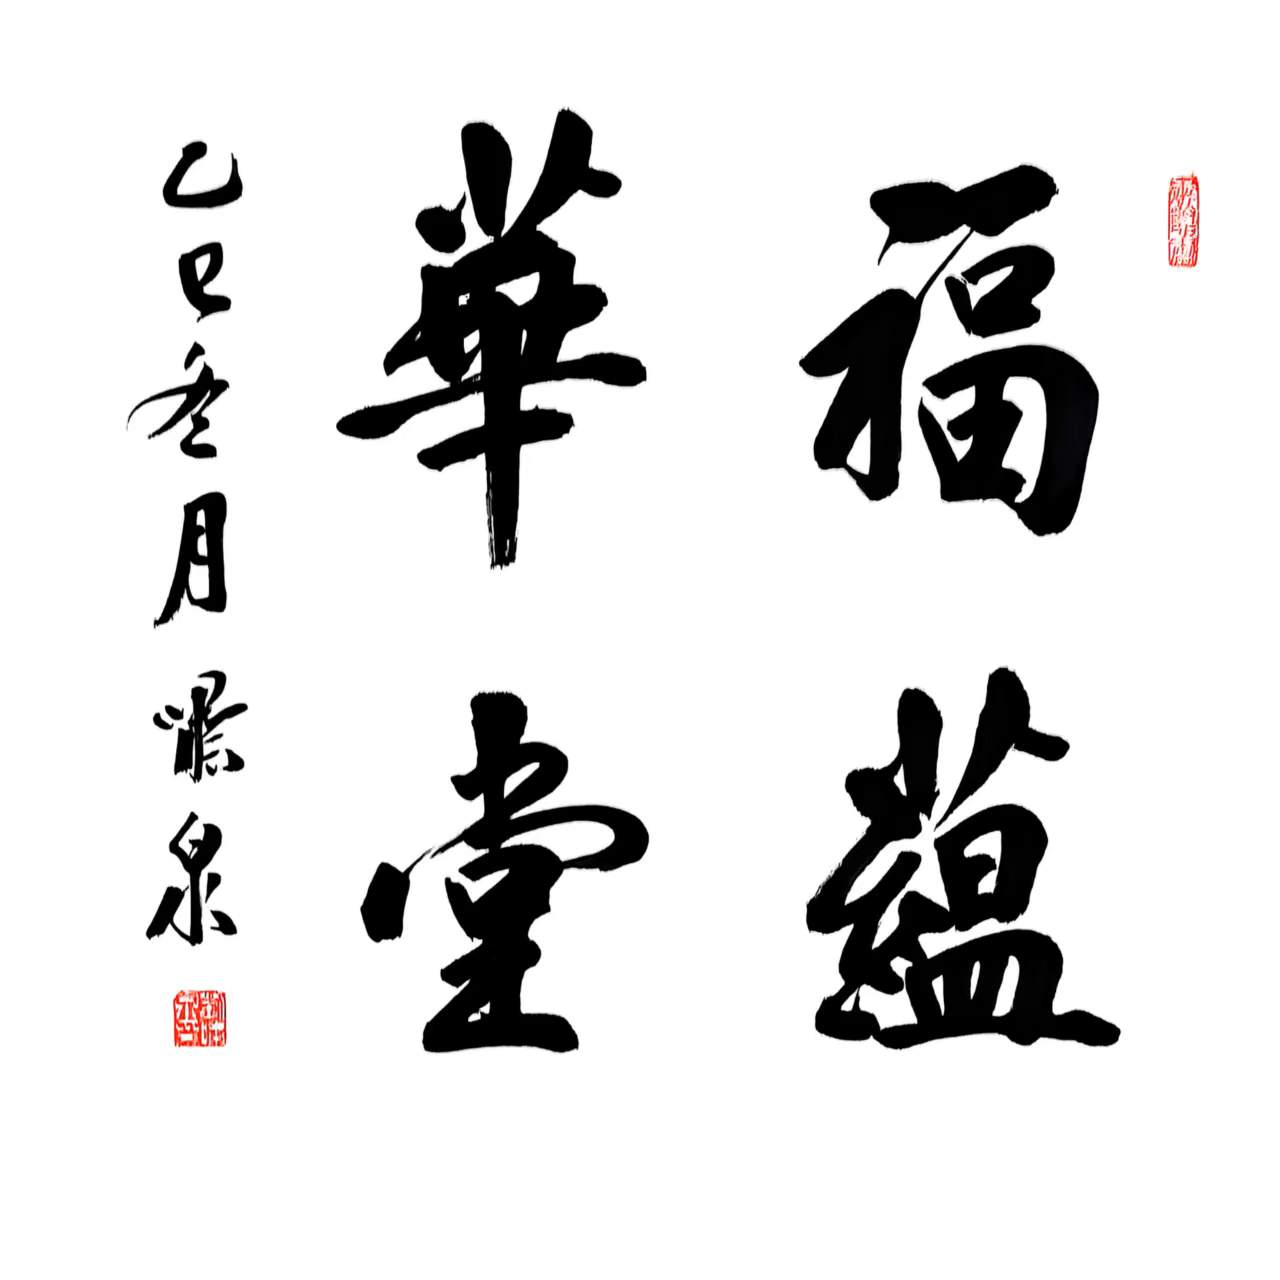 福蘊
華堂
乙巳冬月 泉